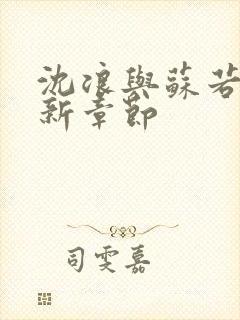 沈浪與蘇若
新章節
司雯嘉